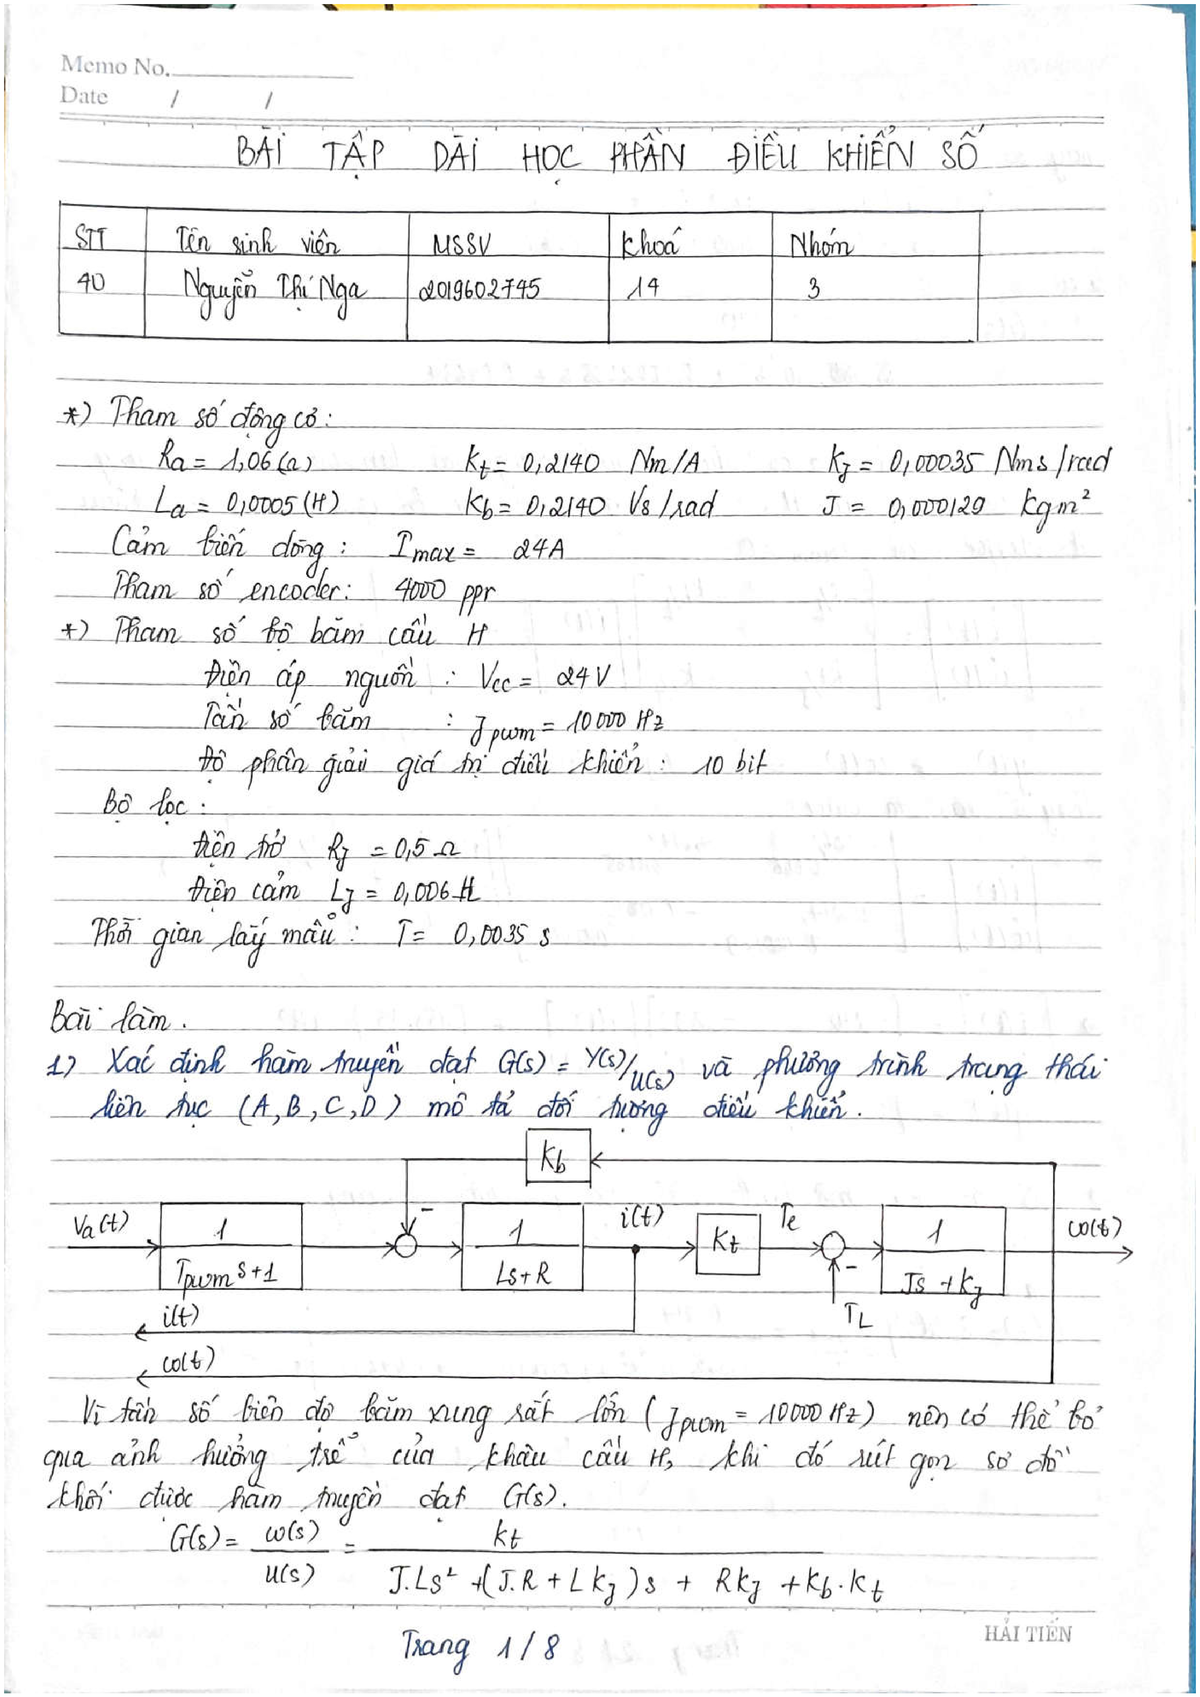 Memo No.
Date / /
BÀI TẬP DÀI HỌC PHẦN ĐIỀU KHIỂN SỐ
STT Tên sinh viên MSSV Khoá Nhóm
40 Nguyễn Thị Nga 2019602745 14 3
*) Tham số động cơ:
Ra = 1,06 (Ω) Kt = 0,2140 Nm/A Kf = 0,00035 Nms/rad
La = 0,0005 (H) Kb = 0,2140 Vs/rad J = 0,000129 kgm²
Cảm biến dòng: Imax = 24A
Tham số encoder: 4000 ppr
*) Tham số bộ băm cầu H
Điện áp nguồn : Vcc = 24V
Tần số băm : fpwm = 10000 Hz
Độ phân giải giá trị điều khiển: 10 bit
Bộ lọc:
Điện trở Rf = 0,5 Ω
Điện cảm Lf = 0,006 H
Thời gian lấy mẫu: T = 0,0035 s
Bài làm.
1) Xác định hàm truyền đạt G(s) = Y(s)/U(s) và phương trình trạng thái
liên tục (A, B, C, D) mô tả đối tượng điều khiển.
Kb
Va(t) 1 / (Tpwm s+1) - 1 / (Ls+R) i(t) Kt Te - 1 / (Js + Kf) ω(t)
i(t) TL
ω(t)
Vì tần số biến độ băm xung rất lớn (fpwm = 10000 Hz) nên có thể bỏ
qua ảnh hưởng trễ của khâu cầu H, khi đó rút gọn sơ đồ
khối được hàm truyền đạt G(s).
G(s) = ω(s)/U(s) = Kt / (J.Ls² + (J.R + LKf)s + RKf + Kb.Kt)
Trang 1/8
HẢI TIẾN